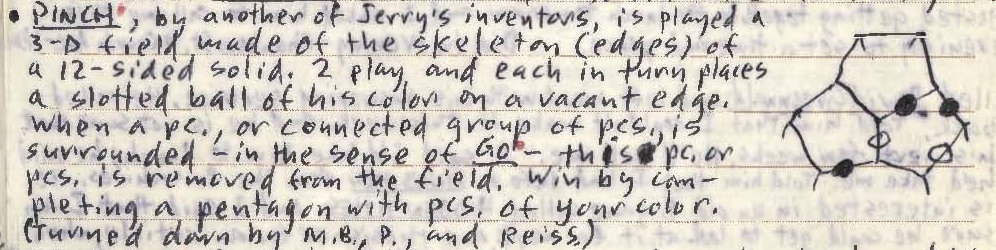 • PINCH, by another of Jerry's inventors, is played a
3-D field made of the skeleton (edges) of
a 12-sided solid. 2 play, and each in turn places
a slotted ball of his color on a vacant edge.
When a pc., or connected group of pcs., is
surrounded - in the sense of GO - this pc. or
pcs. is removed from the field. Win by com-
pleting a pentagon with pcs. of your color.
(Turned down by M.B., P., and Reiss.)